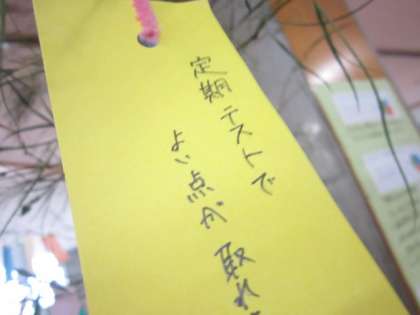 定期テストで
よい点が取れ